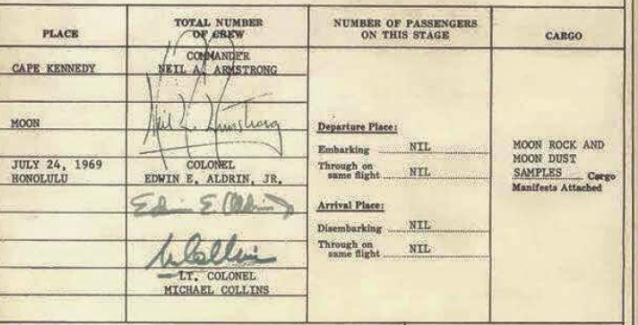 PLACE
TOTAL NUMBER
OF CREW
NUMBER OF PASSENGERS
ON THIS STAGE
CARGO
CAPE KENNEDY
COMMANDER
NEIL A. ARMSTRONG
MOON
Neil A. Armstrong
JULY 24, 1969
HONOLULU
COLONEL
EDWIN E. ALDRIN, JR.
Edwin E. Aldrin Jr
M Collins
LT. COLONEL
MICHAEL COLLINS
Departure Place:
Embarking NIL
Through on
same flight NIL
Arrival Place:
Disembarking NIL
Through on
same flight NIL
MOON ROCK AND
MOON DUST
SAMPLES Cargo
Manifests Attached